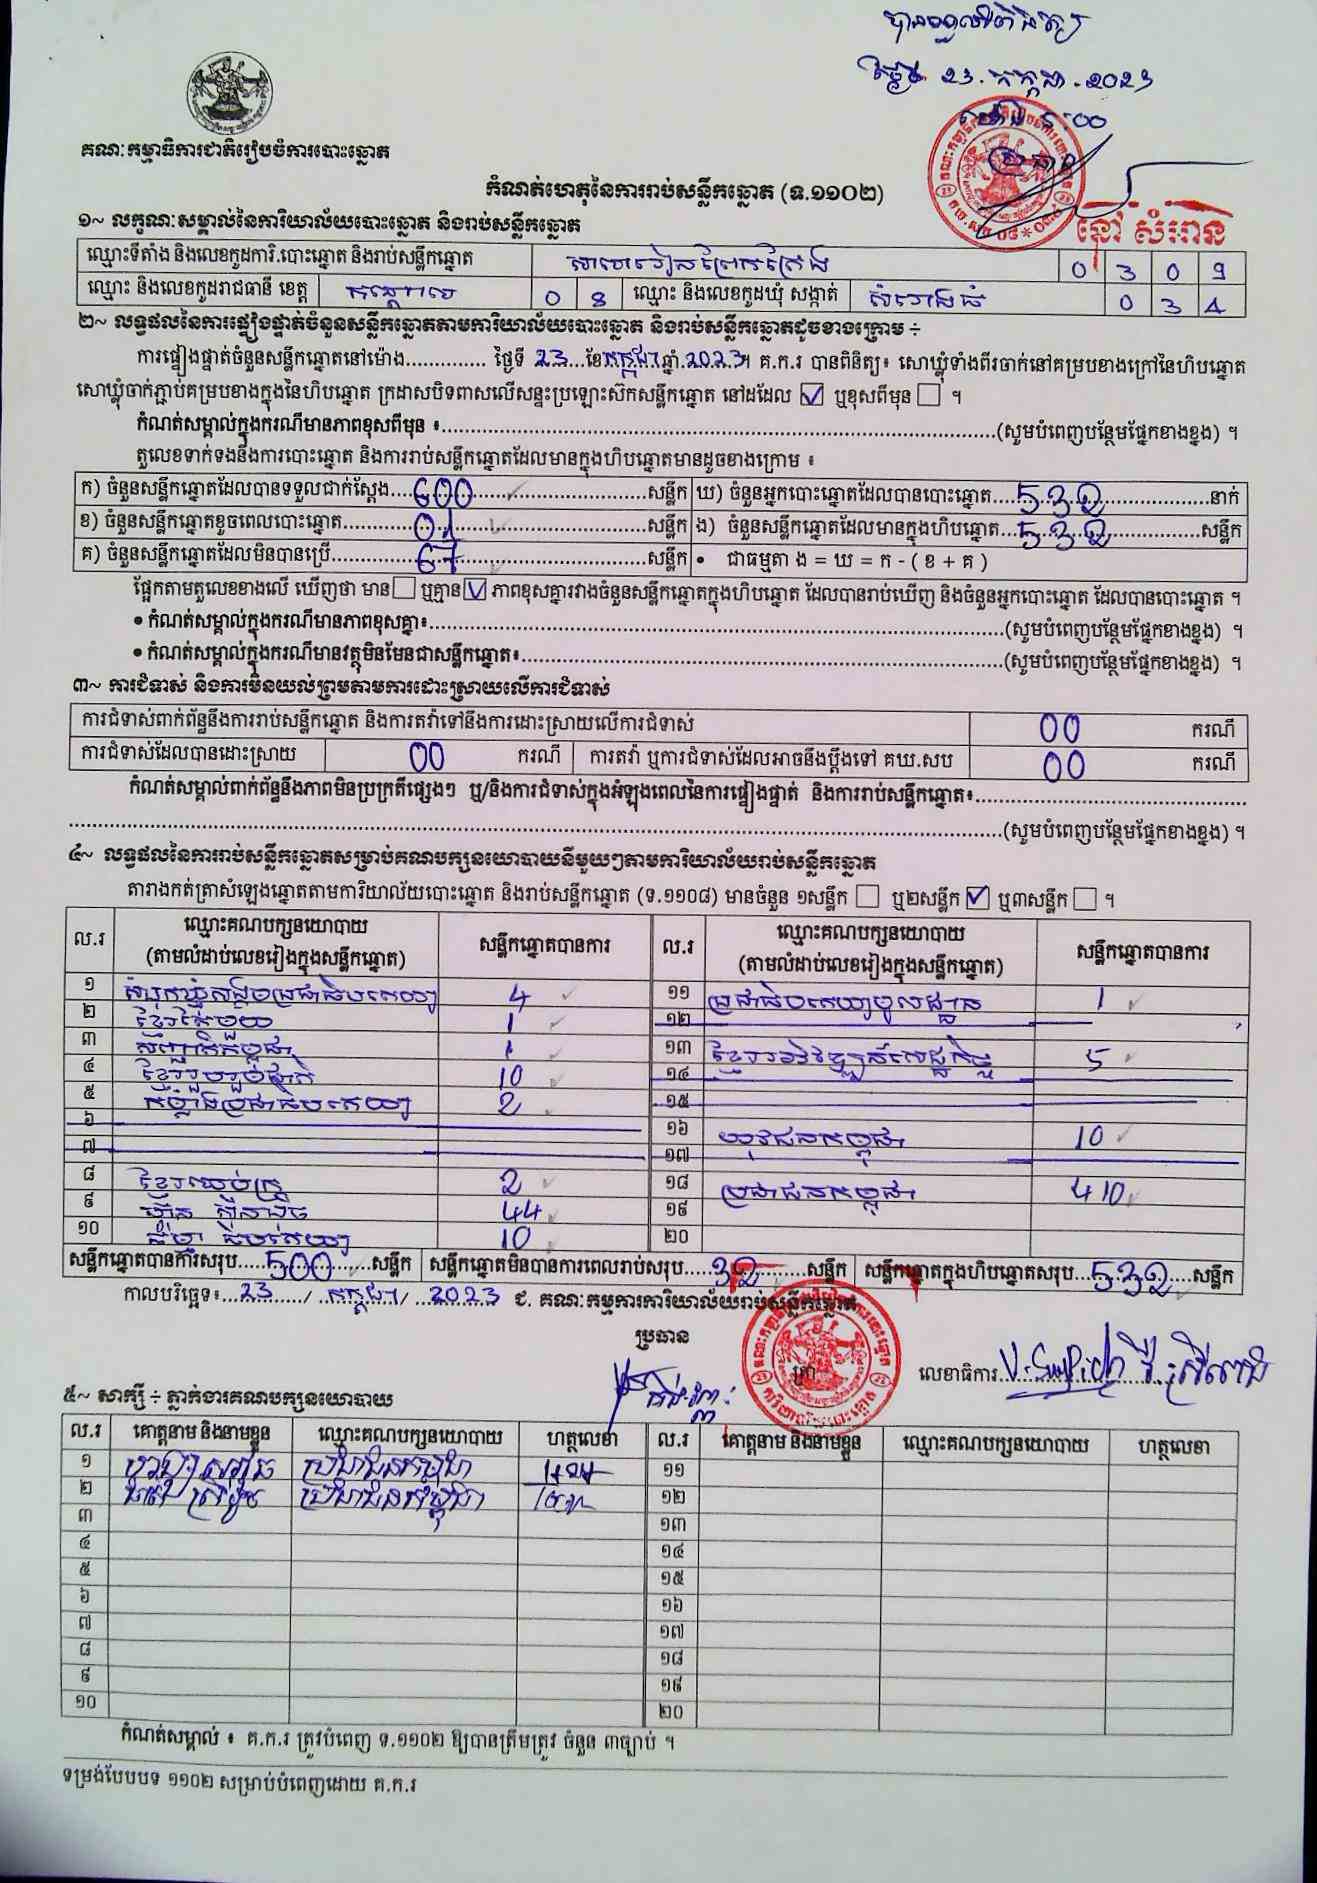 ថ្ងៃទី 23.កក្កដា.2023
គណៈកម្មាធិការជាតិរៀបចំការបោះឆ្នោត
កំណត់ហេតុនៃការរាប់សន្លឹកឆ្នោត (ទ.១១០២)
នៅ សំអាន
១~ លក្ខណៈសម្គាល់នៃការិយាល័យបោះឆ្នោត និងរាប់សន្លឹកឆ្នោត
ឈ្មោះទីតាំង និងលេខកូដការិ.បោះឆ្នោត និងរាប់សន្លឹកឆ្នោត 0 3 0 9
ឈ្មោះ និងលេខកូដរាជធានី ខេត្ត កណ្តាល 0 8 ឈ្មោះ និងលេខកូដឃុំ សង្កាត់ សំរោងធំ 0 3 4
២~ លទ្ធផលនៃការផ្ទៀងផ្ទាត់ចំនួនសន្លឹកឆ្នោតតាមការិយាល័យបោះឆ្នោត និងរាប់សន្លឹកឆ្នោតដូចខាងក្រោម ÷
ការផ្ទៀងផ្ទាត់ចំនួនសន្លឹកឆ្នោតនៅម៉ោង.............. ថ្ងៃទី 23 ខែ កក្កដា ឆ្នាំ 2023។ គ.ក.រ បានពិនិត្យ៖ សោឃ្លុំទាំងពីរចាក់នៅគម្របខាងក្រៅនៃហិបឆ្នោត
សោឃ្លុំចាក់ភ្ជាប់គម្របខាងក្នុងនៃហិបឆ្នោត ក្រដាសបិទពាសលើសន្ទះប្រឡោះស៊កសន្លឹកឆ្នោត នៅដដែល ☑ ឬខុសពីមុន ☐ ។
កំណត់សម្គាល់ក្នុងករណីមានភាពខុសពីមុន ៖..............(សូមបំពេញបន្ថែមផ្នែកខាងខ្នង) ។
តួលេខទាក់ទងនឹងការបោះឆ្នោត និងការរាប់សន្លឹកឆ្នោតដែលមានក្នុងហិបឆ្នោតមានដូចខាងក្រោម ៖
ក) ចំនួនសន្លឹកឆ្នោតដែលបានទទួលជាក់ស្តែង....600....សន្លឹក ឃ) ចំនួនអ្នកបោះឆ្នោតដែលបានបោះឆ្នោត....532....នាក់
ខ) ចំនួនសន្លឹកឆ្នោតខូចពេលបោះឆ្នោត....01....សន្លឹក ង) ចំនួនសន្លឹកឆ្នោតដែលមានក្នុងហិបឆ្នោត....532....សន្លឹក
គ) ចំនួនសន្លឹកឆ្នោតដែលមិនបានប្រើ....67....សន្លឹក • ជាធម្មតា ង = ឃ = ក - ( ខ + គ )
ផ្អែកតាមតួលេខខាងលើ ឃើញថា មាន ☐ ឬគ្មាន ☑ ភាពខុសគ្នារវាងចំនួនសន្លឹកឆ្នោតក្នុងហិបឆ្នោត ដែលបានរាប់ឃើញ និងចំនួនអ្នកបោះឆ្នោត ដែលបានបោះឆ្នោត ។
• កំណត់សម្គាល់ក្នុងករណីមានភាពខុសគ្នា៖..............(សូមបំពេញបន្ថែមផ្នែកខាងខ្នង) ។
• កំណត់សម្គាល់ក្នុងករណីមានវត្ថុមិនមែនជាសន្លឹកឆ្នោត៖..............(សូមបំពេញបន្ថែមផ្នែកខាងខ្នង) ។
៣~ ការជំទាស់ និងការមិនយល់ព្រមតាមការដោះស្រាយលើការជំទាស់
ការជំទាស់ពាក់ព័ន្ធនឹងការរាប់សន្លឹកឆ្នោត និងការតវ៉ាទៅនឹងការដោះស្រាយលើការជំទាស់ 00 ករណី
ការជំទាស់ដែលបានដោះស្រាយ 00 ករណី ការតវ៉ា ឬការជំទាស់ដែលអាចនឹងប្តឹងទៅ គឃ.សប 00 ករណី
កំណត់សម្គាល់ពាក់ព័ន្ធនឹងភាពមិនប្រក្រតីផ្សេងៗ ឬ/និងការជំទាស់ក្នុងអំឡុងពេលនៃការផ្ទៀងផ្ទាត់ និងការរាប់សន្លឹកឆ្នោត៖..............
..............(សូមបំពេញបន្ថែមផ្នែកខាងខ្នង) ។
៤~ លទ្ធផលនៃការរាប់សន្លឹកឆ្នោតសម្រាប់គណបក្សនយោបាយនីមួយៗតាមការិយាល័យរាប់សន្លឹកឆ្នោត
តារាងកត់ត្រាសំឡេងឆ្នោតតាមការិយាល័យបោះឆ្នោត និងរាប់សន្លឹកឆ្នោត (ទ.១១០៨) មានចំនួន ១សន្លឹក ☐ ឬ២សន្លឹក ☑ ឬ៣សន្លឹក ☐ ។
ល.រ ឈ្មោះគណបក្សនយោបាយ (តាមលំដាប់លេខរៀងក្នុងសន្លឹកឆ្នោត) សន្លឹកឆ្នោតបានការ ល.រ ឈ្មោះគណបក្សនយោបាយ (តាមលំដាប់លេខរៀងក្នុងសន្លឹកឆ្នោត) សន្លឹកឆ្នោតបានការ
១ សំបុកឃ្មុំសង្គមប្រជាធិបតេយ្យ 4 ១១ ប្រជាធិបតេយ្យមូលដ្ឋាន 1
២ ខ្មែរតែមួយ 1 ១២
៣ 1 ១៣ ខ្មែរអភិវឌ្ឍន៍សេដ្ឋកិច្ច 5
៤ ខ្មែររួបរួមជាតិ 10 ១៤
៥ កម្លាំងប្រជាធិបតេយ្យ 2 ១៥
៦ ១៦ យុវជនកម្ពុជា 10
៧ ១៧
៨ ខ្មែរឈប់ក្រ 2 ១៨ ប្រជាជនកម្ពុជា 410
៩ ហ៊្វុនស៊ិនប៉ិច 44 ១៩
១០ ធម្មាធិបតេយ្យ 10 ២០
សន្លឹកឆ្នោតបានការសរុប....500....សន្លឹក សន្លឹកឆ្នោតមិនបានការពេលរាប់សរុប....32....សន្លឹក សន្លឹកឆ្នោតក្នុងហិបឆ្នោតសរុប....532....សន្លឹក
កាលបរិច្ឆេទ៖ 23 / កក្កដា / 2023 ជ. គណៈកម្មការការិយាល័យរាប់សន្លឹកឆ្នោត
ប្រធាន
លេខាធិការ
៥~ សាក្សី ÷ ភ្នាក់ងារគណបក្សនយោបាយ
ល.រ គោត្តនាម និងនាមខ្លួន ឈ្មោះគណបក្សនយោបាយ ហត្ថលេខា ល.រ គោត្តនាម និងនាមខ្លួន ឈ្មោះគណបក្សនយោបាយ ហត្ថលេខា
១ ប្រជាជនកម្ពុជា ១១
២ ប្រជាជនកម្ពុជា ១២
៣ ១៣
៤ ១៤
៥ ១៥
៦ ១៦
៧ ១៧
៨ ១៨
៩ ១៩
១០ ២០
កំណត់សម្គាល់ ៖ គ.ក.រ ត្រូវបំពេញ ទ.១១០២ ឱ្យបានត្រឹមត្រូវ ចំនួន ៣ច្បាប់ ។
ទម្រង់បែបបទ ១១០២ សម្រាប់បំពេញដោយ គ.ក.រ